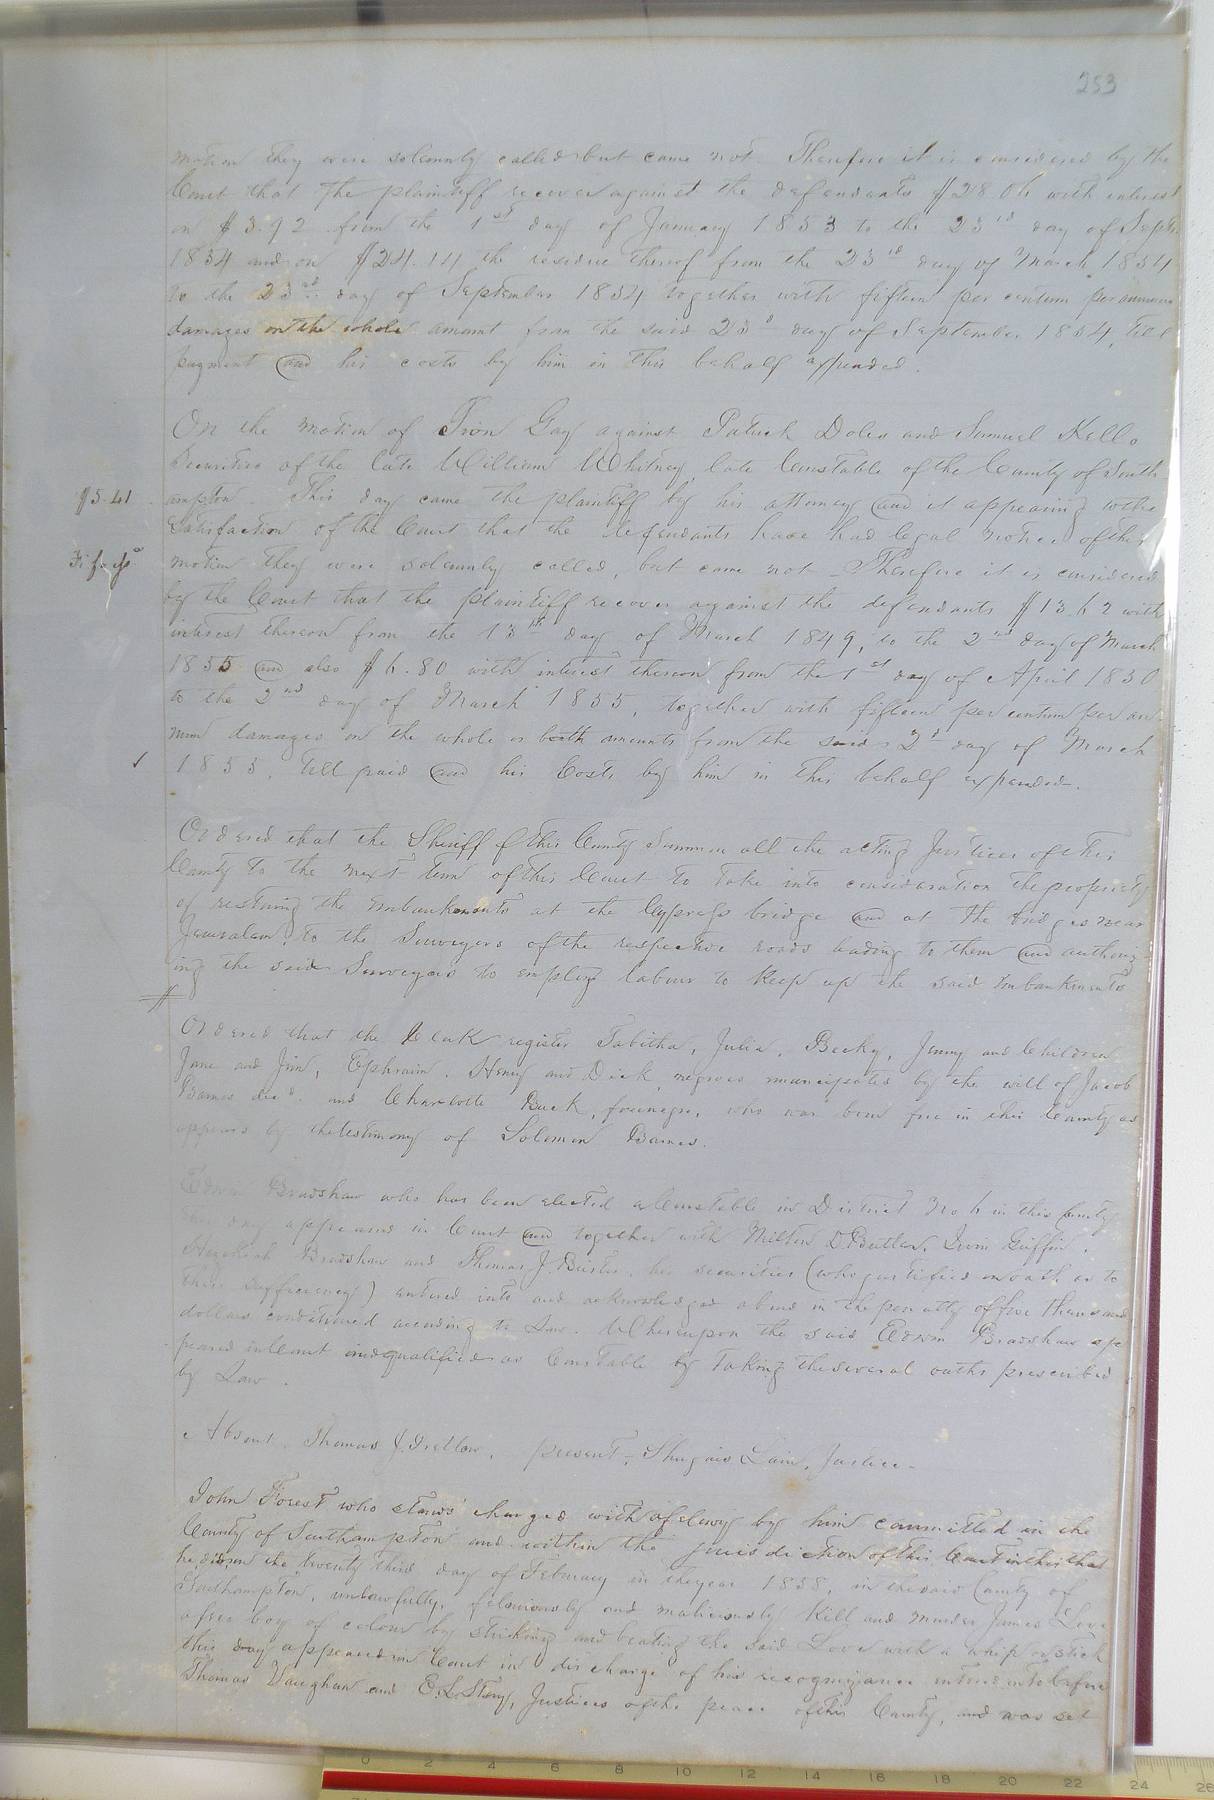 253
motion they were solemnly called but came not. Therefore it is considered by the
Court that the plaintiff recover against the defendants $28.06 with interest
on $3.92 from the 1st day of January 1853 to the 23rd day of Septr
1854 and on $24.14 the residue thereof from the 23rd day of March 1854
to the 23rd day of September 1854 together with fifteen per centum per annum
damages on the whole amount from the said 23d day of September 1854, till
payment and his costs by him in this behalf expended.
On the motion of Gay against Patrick Doles and Samuel Kello
Securities of the late William Whitney late Constable of the County of South-
$5.41
ampton. This day came the plaintiff by his attorney and it appearing to the
Satisfaction of the Court that the defendants have had legal notice of this
Fi fa
motion they were solemnly called, but came not – Therefore it is considered
by the Court that the plaintiff recover against the defendants $13.62 with
interest thereon from the 13th day of March 1849, to the 2nd day of March
1855 and also $6.80 with interest thereon from the 1st day of April 1850
to the 2nd day of March 1855, together with fifteen per centum per an-
num damages on the whole or both amounts from the said 2d day of March
✓ 1855, till paid and his Costs by him in this behalf expended.
Ordered that the Sheriff of this County Summon all the acting Justices of this
County to the next term of this Court to take into consideration the propriety
of restoring the embankments at the Cypress bridge and at the bridges near
Jerusalem, to the Surveyors of the respective roads leading to them and authoriz-
ing the said Surveyors to employ labour to keep up the said embankments
Ordered that the Clerk register Tabitha, Julia, Becky, Jenny and Children
Jane and Jim, Ephraim, Henry and Dick, negroes emancipated by the will of Jacob
Barnes decd. and Charlotte Buck, free negro, who was born free in this County as
appears by the testimony of Solomon Barnes.
Edwin Bradshaw who has been elected a Constable in District No 6 in this County
this day appeared in Court and together with Milton D. Butler, Irvin Griffin,
Hezekiah Bradshaw and Thomas J. Bristor his securities (who justified on oath as to
their sufficiency) entered into and acknowledged a bond in the penalty of five thousand
dollars conditioned according to Law. Whereupon the said Edwin Bradshaw ap-
peared in Court and qualified as Constable by taking the several oaths prescribed
by Law.
Absent, Thomas J. Pretlow, present, Lain, Justice.
John Forest who stands charged with a felony by him committed in the
County of Southampton and within the jurisdiction of this Court in this that
he did on the twenty third day of February in the year 1858, in the said County of
Southampton, unlawfully, feloniously and maliciously kill and murder James Love
a free boy of colour by striking and beating the said Love with a whip or stick
this day appeared in Court in discharge of his recognizance entered into before
Thomas Vaughan and Justices of the peace of this County, and was set
0 2 4 6 8 10 12 14 16 18 20 22 24 26